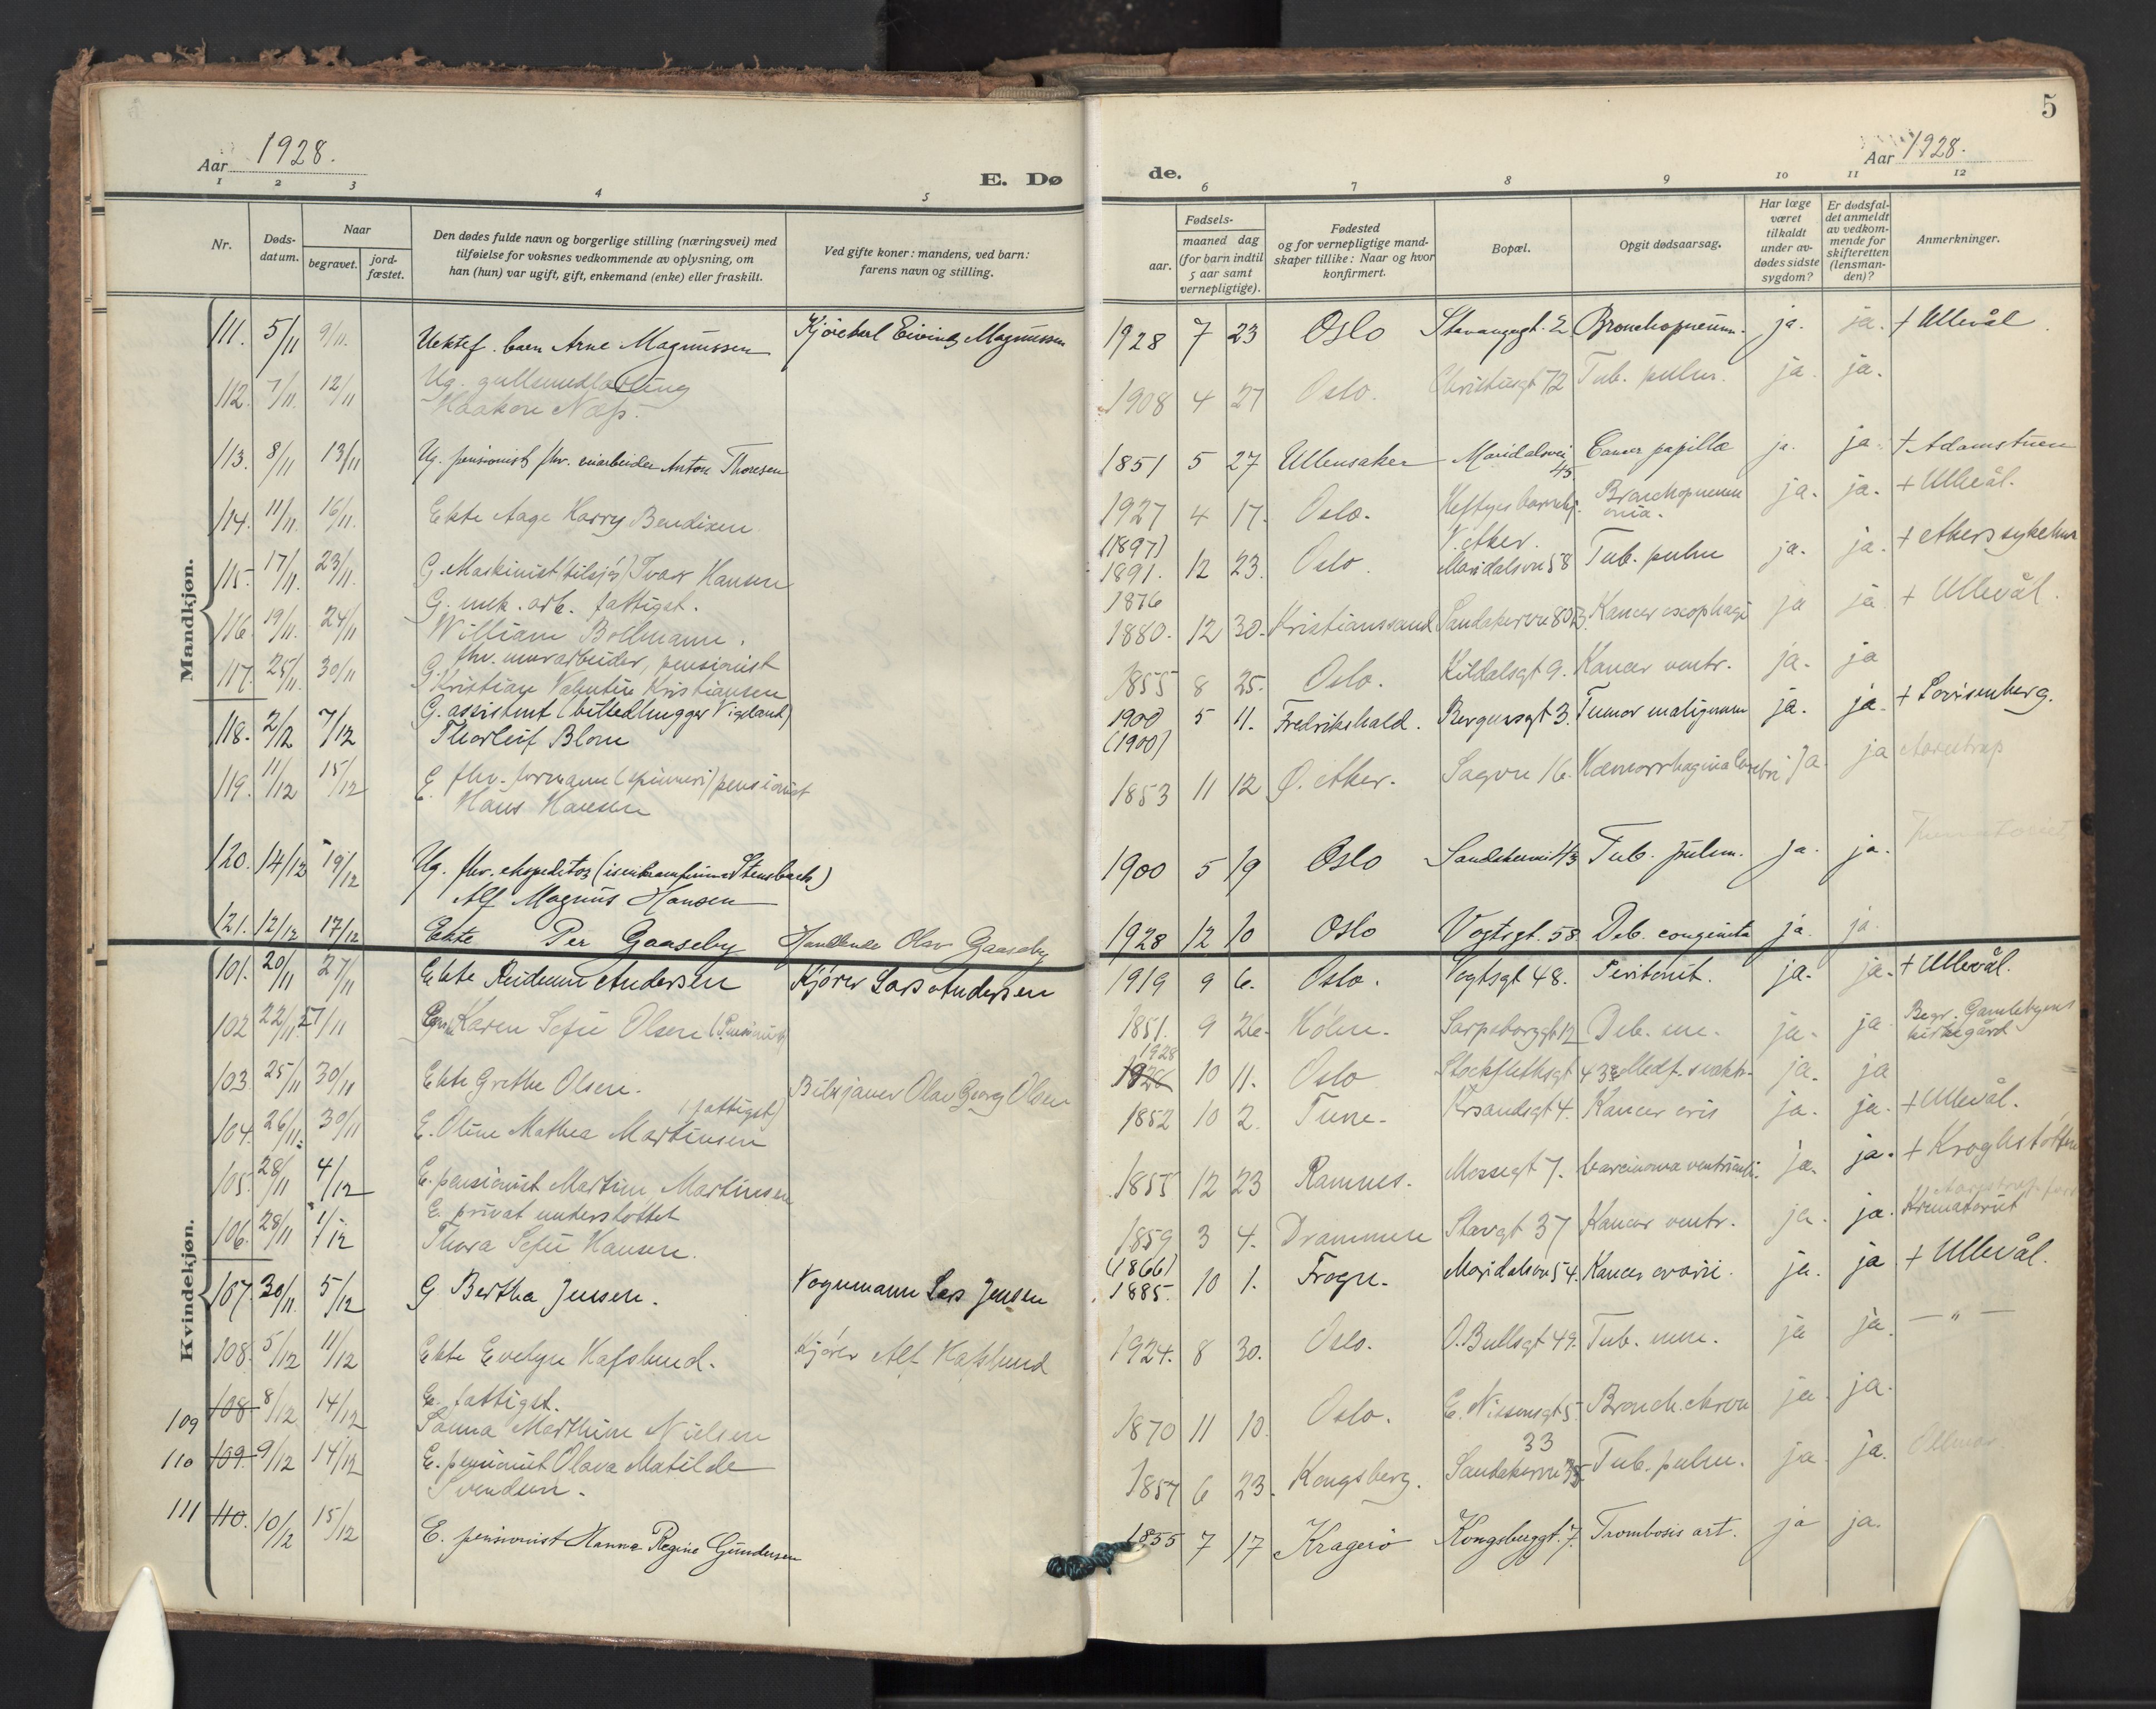 5
Aar 1928.
Aar 1928.
E. Dø
de.
1 2 3 4 5 6 7 8 9 10 11 12
Nr.
Døds-
datum.
Naar
begravet.
jord-
fæstet.
Den dødes fulde navn og borgerlige stilling (næringsvei) med
tilføielse for voksnes vedkommende av oplysning, om
han (hun) var ugift, gift, enkemand (enke) eller fraskilt.
Ved gifte koner: mandens, ved barn:
farens navn og stilling.
Fødsels-
aar.
maaned dag
(for barn indtil
5 aar samt
vernepligtige).
Fødested
og for vernepligtige mand-
skaper tillike: Naar og hvor
konfirmert.
Bopæl.
Opgit dødsaarsag.
Har læge
været
tilkaldt
under av-
dødes sidste
sygdom?
Er dødsfal-
det anmeldt
av vedkom-
mende for
skifteretten
(lensman-
den)?
Anmerkninger.
Mandkjøn.
111. 5/11 9/11. Uektef. barn Arne Magnussen Eivind Magnussen 1928 7 23 Oslo Stavangergt. 2 Bronchopneum. ja. ja. † Ullevål
112. 7/11. 12/11 Ug.
Haakon Næss. 1908 4 27 Oslo. 12 Tub. pulm. ja ja.
113. 8/11 13/11 Ug. pensionist fhv. veiarbeider Anton Thoresen 1851 5 27 Ullensaker Maridalsvei 45 Cancer papillæ ja. ja. † Adamstuen
114. 11/11. 16/11. Ekte Aage Harry Bendixen 1927 4 17. Oslo. Heftyes barnehj.
V. Aker. Bronchopneumonia. ja. ja. † Ullevål.
115. 17/11. 23/11. G. Maskinist (tilsjøs) Ivar Hansen (1897)
1891. 12 23. Oslo. Maridalsvn 58 Tub. pulm ja. ja. † Akers sykehus
116. 19/11. 24/11 G. mek. arb. fattigst.
William Bollmann. 1876
1880. 12 30. Kristianssand Sandakervn 80 Kancer oesophagi ja ja † Ullevål.
117. 25/11. 30/11 G. fhv. murarbeider, pensionist
Kristian Valentin Kristiansen 1855 8 25. Oslo. Kildalsgt 9. Kancer ventr. ja. ja
118. 2/12 7/12 G. assistent (billedhugger Vigeland)
Thorleif Blom 1900
(1900) 5 11. Fredrikshald. Bergensgt 3. Tumor malignum ja. ja. † Lovisenberg.
119. 11/12 15/12 E. fhv. formann (spinneri) pensionist
Hans Hansen 1853 11 12 Ø. Aker. Sagvn 16. Hæmorrhagia cerebri ja. ja
120. 14/12 19/12 Ug. fhv. ekspeditør (isenkramfirma Stensbach)
Alf Magnus Hansen 1900 5 19 Oslo Tub. pulm. ja. ja.
121. 12/12 17/12 Ekte Per Gaaseby Handlende Olav Gaaseby 1928 12 10 Oslo Vogtsgt. 58 Deb. congenita ja. ja.
Kvindekjøn.
101. 20/11 27/11 Ekte Reidunn Andersen Kjører Lars Andersen 1919 9 6. Oslo. Vogtsgt 48. Peritonit. ja. ja. † Ullevål.
102 22/11. 27/11 Karen Sofie Olsen (Pensionist) 1851. 9 26. Hölen. Sarpsborggt 12 Deb. sen. ja. ja. Begr. Gamlebyens
kirkegård
103 25/11 30/11 Ekte Grethe Olsen. Olav Georg Olsen 1928 10 11. Oslo Stockflethsgt 43 Medf. svakh. ja. ja
104. 26/11. 30/11 E. Oline Mathea Martinsen (fattigst) 1852 10 2. Tune. Krsandsgt 4. Kancer oris ja. ja. † Ullevål.
105. 28/11 4/12 E. pensionist Martine Martinsen 1855 12 23 Ramnes. Mossegt 7. Carcinoma ventriculi. ja. ja. † Kroghstøtten
106. 28/11 1/12 E. privat understøttet
Thora Sofie Hansen. 1859 3 4. Drammen Stavgt 37 Kancer ventr. ja. ja. Krematoriet
107. 30/11. 5/12 G Bertha Jensen. Vognmann Lars Jensen (1866)
1885. 10 1. Frogn. Maridalsvn 54. Kancer ovarii. ja. ja † Ullevål.
108. 5/12 11/12 Ekte Evelyn Hafslund. Kjører Alf Hafslund 1924. 8 30. Oslo. O. Bullsgt 49. Tub. men. ja ja. — " —
109 108 8/12 14/12 E. fattigst.
Sanna Marthine Nielsen 1870 11 10. Oslo. E. Nissensgt 5. Bronch. chron ja. ja.
110 109. 9/12 14/12 E. pensionist Olava Matilde
Svendsen. 1857 6 23. Kongsberg. Sandakervn 33 Tub. pulm. ja. ja.
111 110. 10/12 15/12 E. pensionist Hanna Regine Gundersen 1855 7 17 Kragerö Kongsberggt. 7. Trombosis art. ja ja.